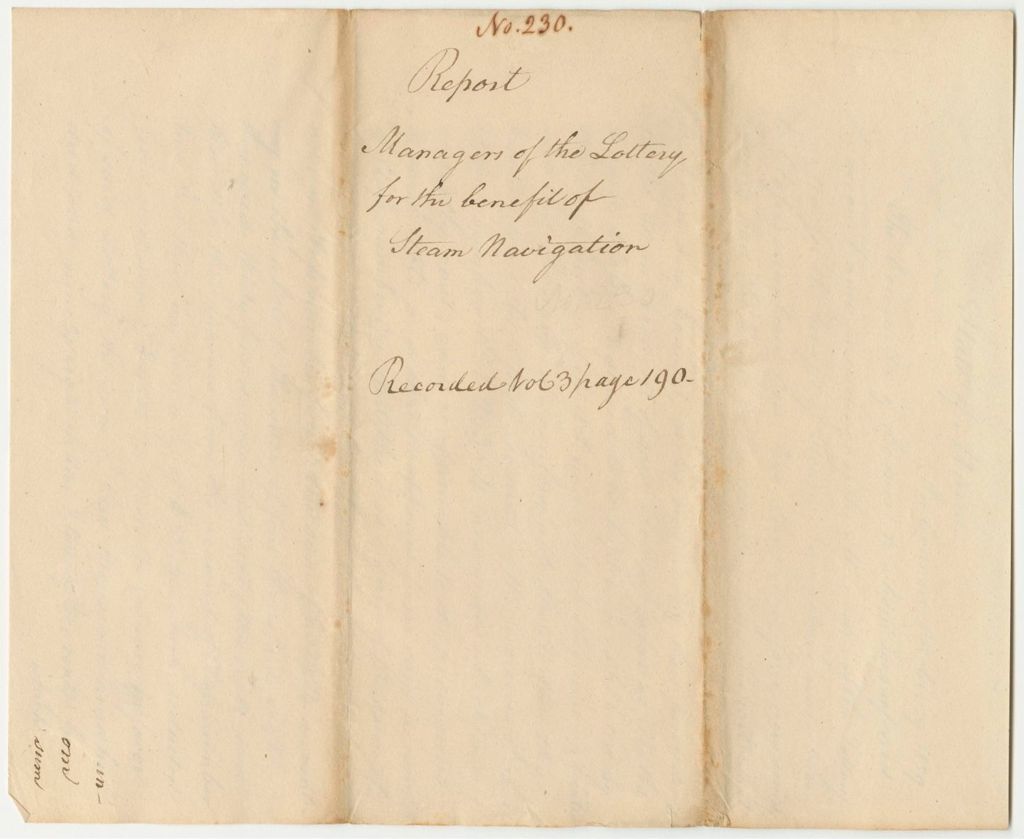 No. 230.
Report
Managers of the Lottery
for the benefit of
Steam Navigation
Recorded Vol 3 page 190-